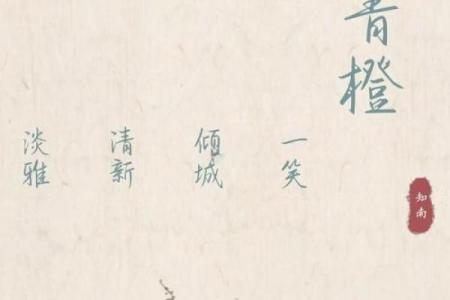 青橙
一笑
倾城
清新
淡雅
知南